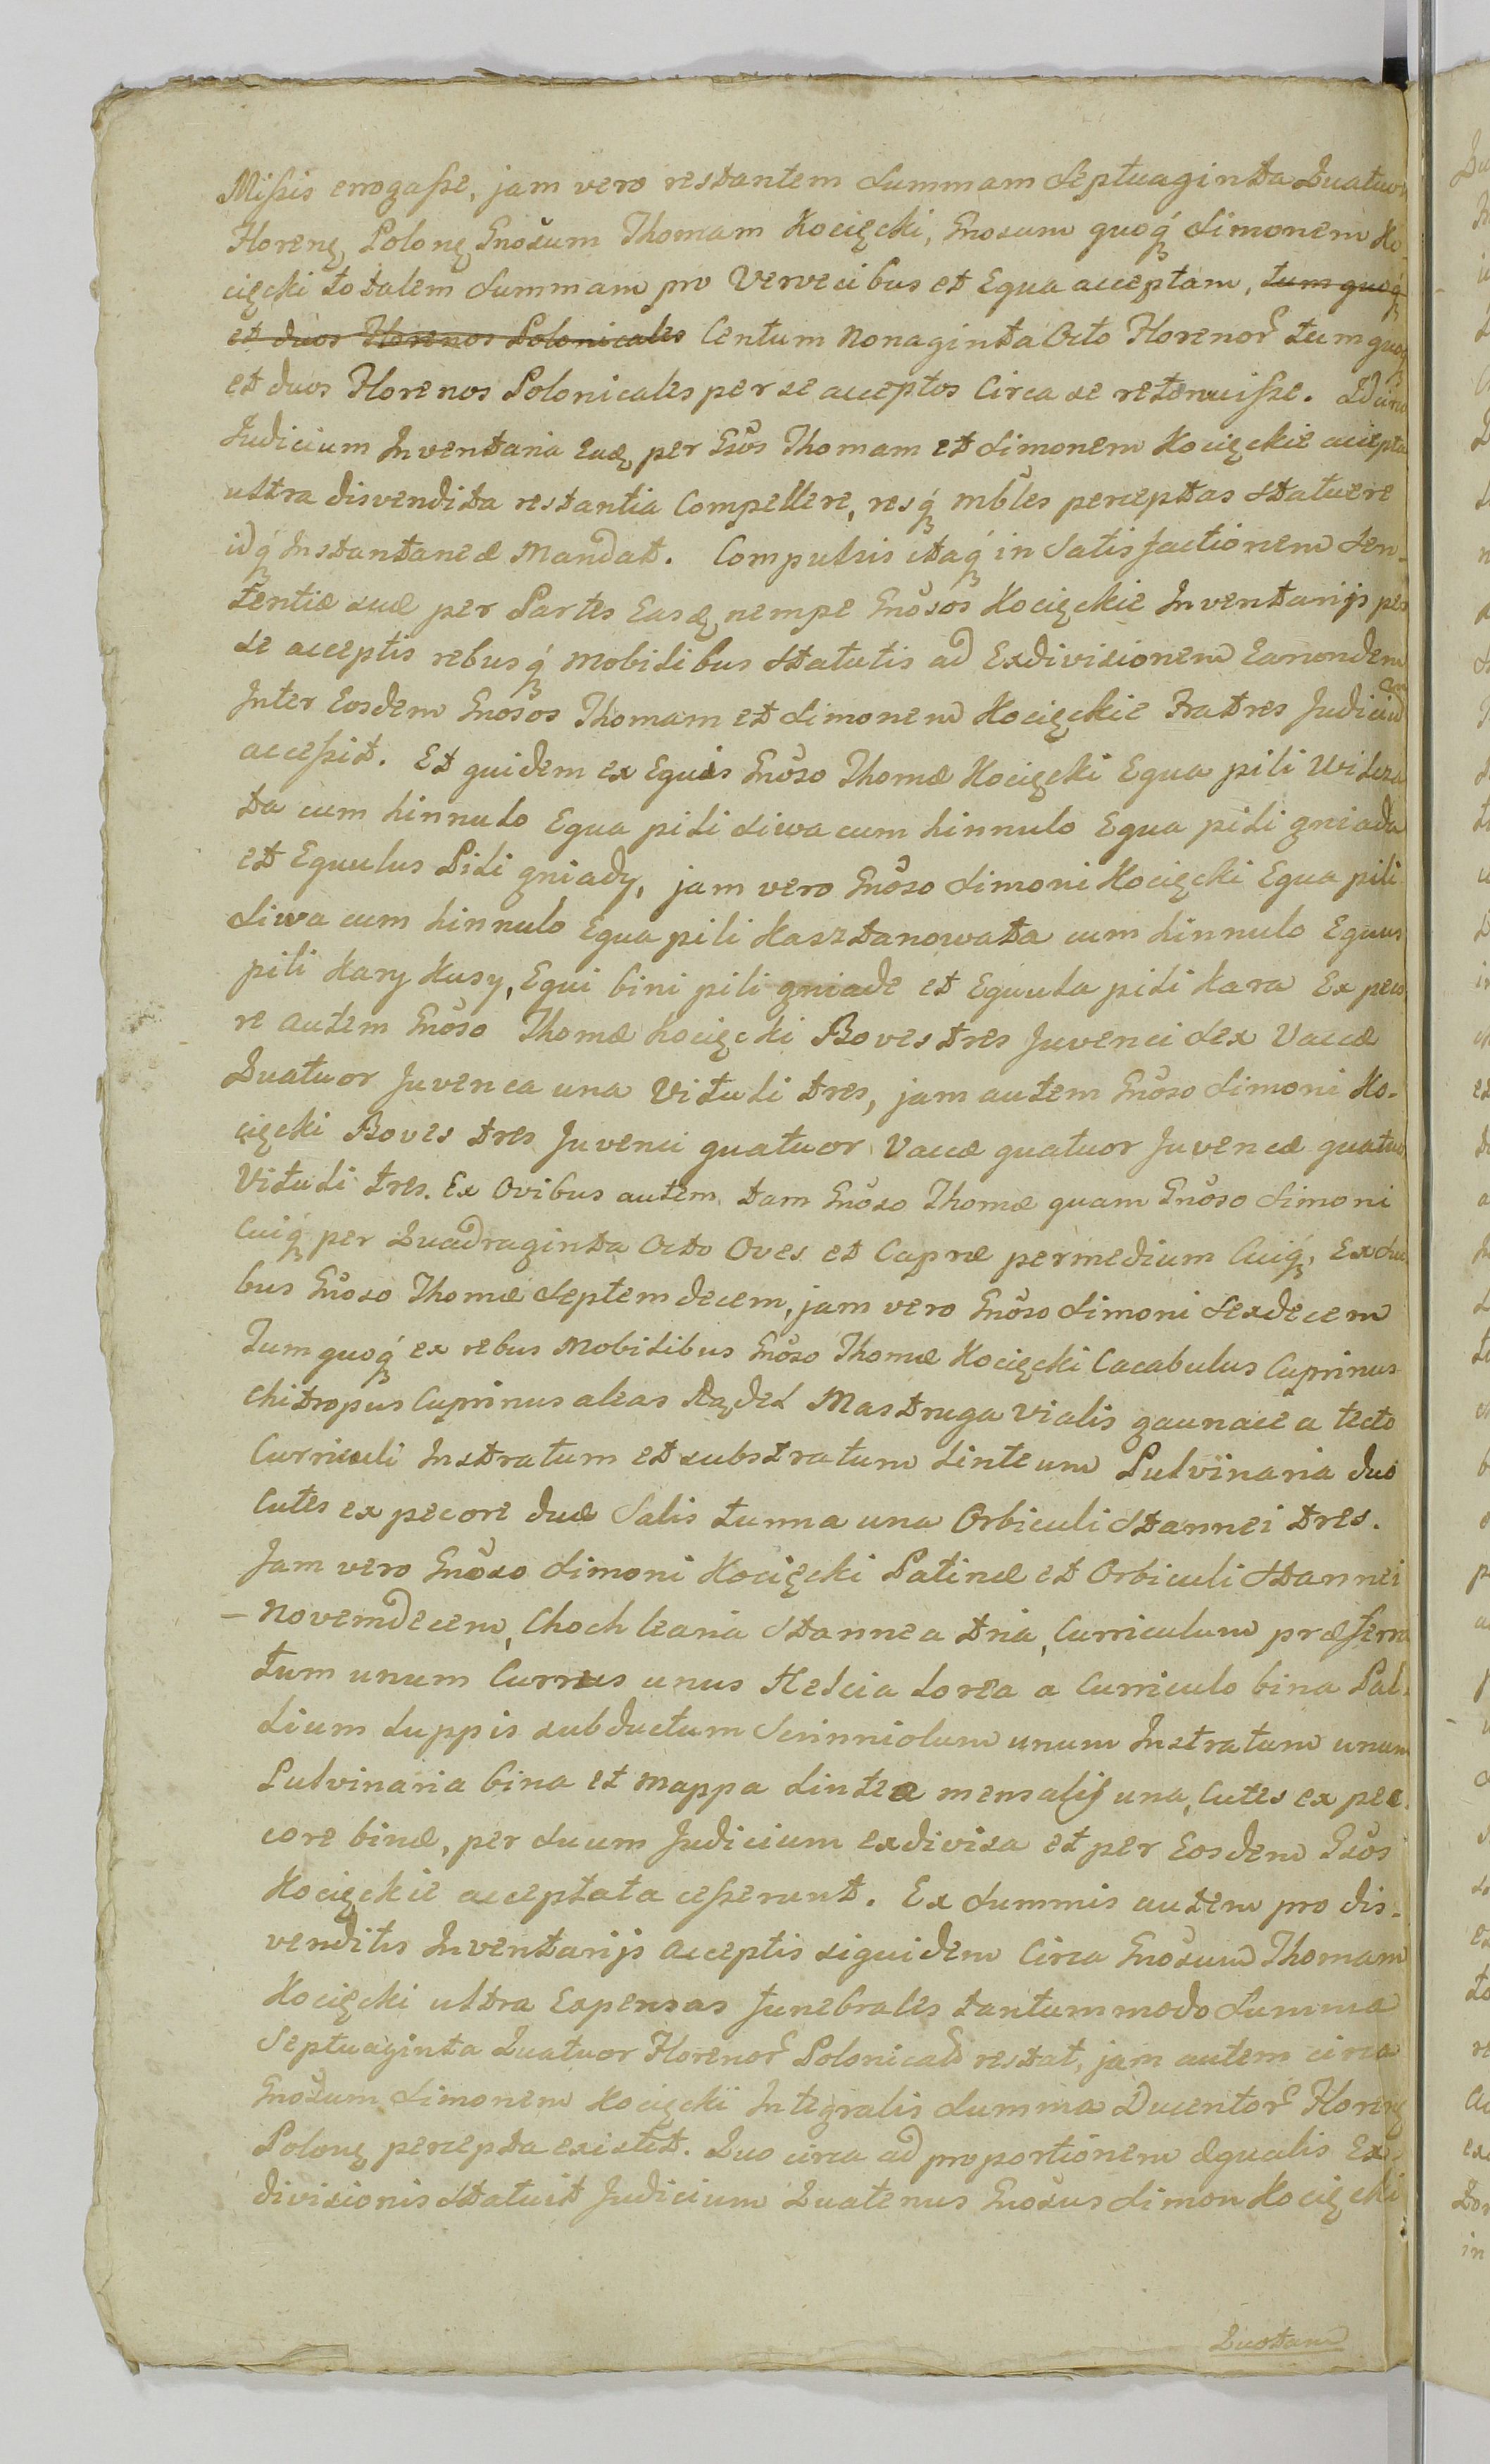 Missis errogasse, jam vero restantem Summam Septuaginta Quatuor
Floreng Polong Gnosum Thomam Kocięcki, Gnosum quoq́ Simonem Ko-
cięcki totalem Summam pro Vervecibus et Equa acceptam, tum quoq́
et duos Florenos Polonicales Centum Nonaginta Octo Florenor tum quoq́
et duos Florenos Polonicales per se acceptos Circa se retinuisse. Id circo
Judicium Inventaria Eaq per Gsos Thomam et Simonem Kocięckie accepta
ultra disvendita restantia Compellere, resq́ mbles perceptas Statuere
idq́ Instantaneæ Mandat. Compulsis itaq́ in Satisfactionem Sen-
tentiæ suæ per Partes Easq nempe Gnosos Kocięckie Inventarijs per
Se acceptis rebusq́ Mobilibus Statutis ad Exdivisionem Earondem
Inter Eosdem Gnosos Thomam et Simonem Kocięckie Fratres Judicium
accessit. Et quidem ex Equis Gnoso Thomæ Kocięcki Equa pili Wilcza
ta cum hinnulo Equa pili Siwa cum hinnulo Equa pili gniada
et Equulus Pili gniady, jam vero Gnoso Simoni Kocięcki Equa pili
Siwa cum hinnulo Equa pili Kasztanowata cum hinnulo Equus
pili Kary Kusy, Equi bini pili gniade et Equula pili Kara Ex peco
re autem Gnoso Thomæ Kocięcki Boves tres Juvenci Sex Vaccæ
Quatuor Juvenca una Vituli tres, jam autem Gnoso Simoni Ko-
cięcki Boves tres Juvenci quatuor Vaccæ quatuor Juvencæ quatuor
Vituli tres. Ex Ovibus autem tam Gnoso Thomæ quam Gnoso Simoni
Cuiq́ per Quadraginta Octo Oves et Capræ per medium Cuiq́, Ex Sui
bus Gnoso Thomæ Septemdecem, jam vero Gnoso Simoni Sexdecem
Tum quoq́ ex rebus Mobilibus Gnoso Thomæ Kocięcki Cacabulus Cuprinus
Chitropus Cuprinus aleas Rądel Mastruga Vialis gaunacea tecto
Curriculi Instratum et substratum Linteum Pulvinaria duo
Cutes ex pecore duæ Salis tunna una Orbiculi Stannei tres.
Jam vero Gnoso Simoni Kocięcki Patinæ et Orbiculi Stannei
– Novemdecem, Chochlearia Stannea tria, Curriculum præferra
tum unum Currus unus Helcia Lorea a Curriculo bina Pal-
lium Luppis subductum Scrinniolum unum Instratum unum
Pulvinaria bina et Mappa Lintea mensalis una, Cutes ex pe
core binæ, per Suum Judicium exdivisa et per Eosdem Gsos
Kocięckie acceptata cesserunt. Ex Summis autem pro dis-
venditis Inventarijs acceptis siquidem Circa Gnosum Thomam
Kocięcki ultra Expensas funebrales tantummodo Summa
Septuaginta Quatuor Florenor Polonical restat, jam autem circa
Gnosum Simonem Kocięcki Integralis Summa Ducentor Floreng
Polong percepta existit. Quo circa ad proportionem æqualis Ex-
divisionis Statuit Judicium Quatenus Gnosus Simon Kocięcki
Quotam